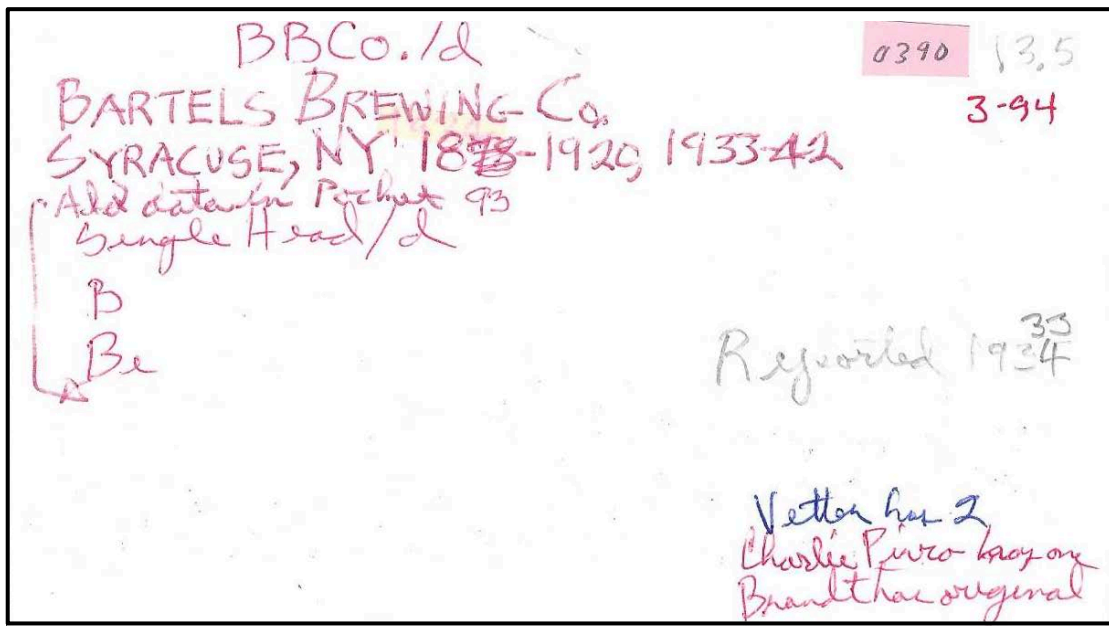 BBCo./d
0390
13.5
3-94
BARTELS BREWING Co.
SYRACUSE, NY 18-1920, 1933-42
Add data in Pocket 93
Single Head/d
B
Be
Reported 1934
33
Vetter has 2
Charlie Pivro has one
Brandt has original